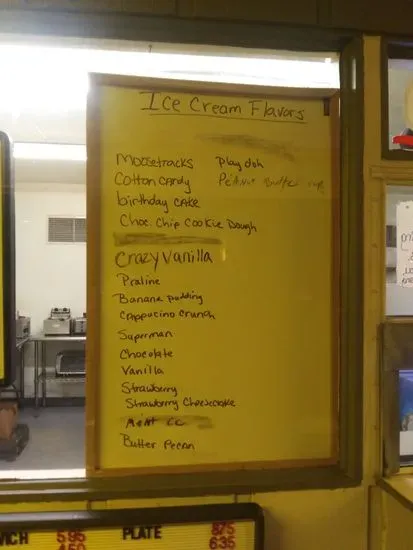 Ice Cream Flavors
Moosetracks
Cotton CANDY
birthday CAKE
Choc. Chip Cookie Dough
Crazy Vanilla
Praline
Banana pudding
Cappucino crunch
Superman
Chocolate
Vanilla
Strawberry
Strawberry Cheesecake
Mint CC
Butter Pecan
Play doh
Peanut Butter cup
WICH 5.95
4.50
PLATE 8.75
6.35